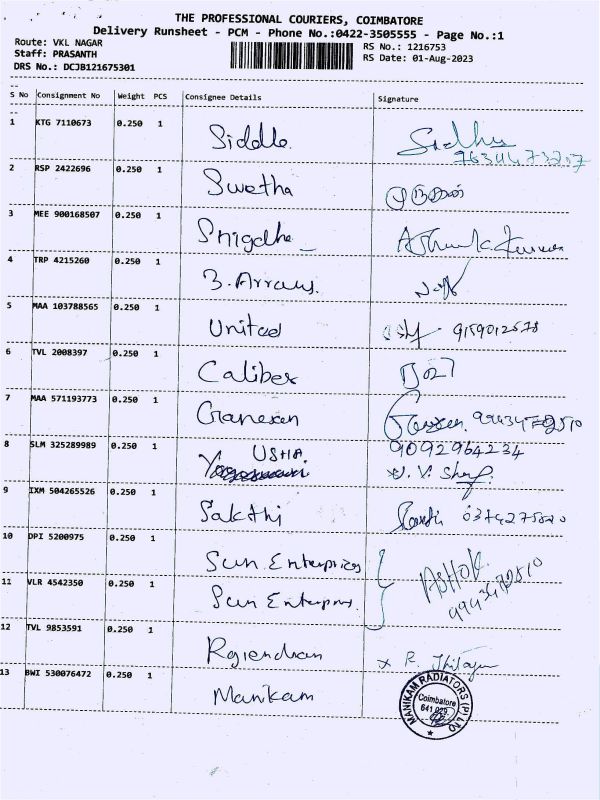 THE PROFESSIONAL COURIERS, COIMBATORE
Delivery Runsheet - PCM - Phone No.:0422-3505555 - Page No.:1
Route: VKL NAGAR
Staff: PRASANTH
DRS No.: DCJB121675301
RS No.: 1216753
RS Date: 01-Aug-2023
--
S No Consignment No Weight PCS Consignee Details Signature
--
1 KTG 7110673 0.250 1 Siddle
2 RSP 2422696 0.250 1 Swetha
3 MEE 900168507 0.250 1 Snigdha
4 TRP 4215260 0.250 1 3. Arrows.
5 MAA 103788565 0.250 1 United 9159012578
6 TVL 2008397 0.250 1 Caliber
7 MAA 571193773 0.250 1 Ganesan
8 SLM 325289989 0.250 1 USHA. 9092964234
9 IXM 504265526 0.250 1 Sakthi
10 DPI 5200975 0.250 1 Sun Enterprises
11 VLR 4542350 0.250 1 Sun Enterprises. ASHOK.
12 TVL 9853591 0.250 1 Rajendran
13 BWI 530076472 0.250 1 Manikam
MANIKAM RADIATORS (P) LTD
Coimbatore
641 029